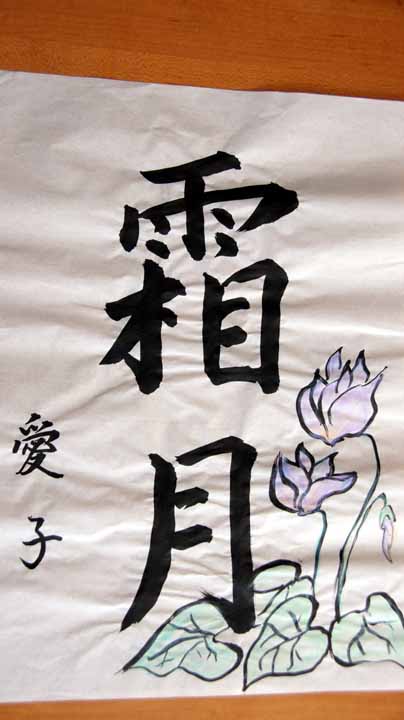 霜月
愛子